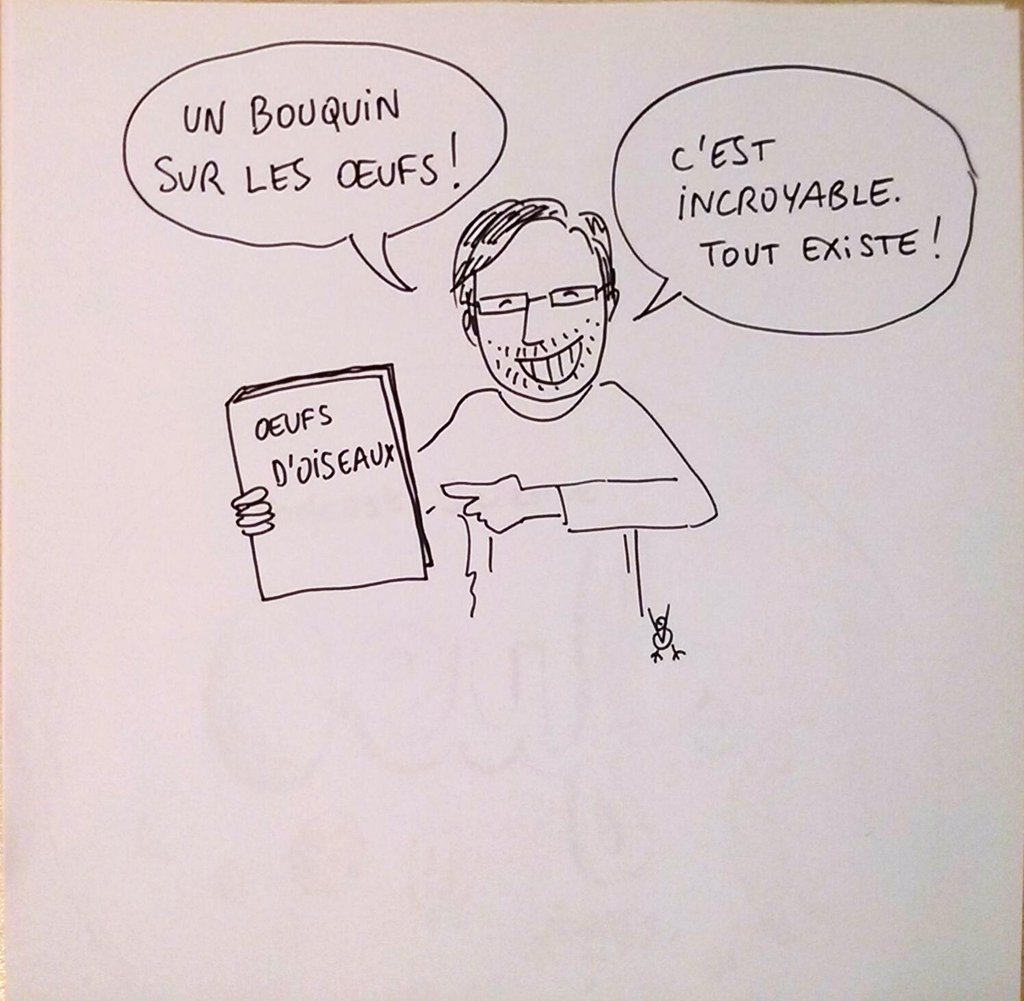 UN BOUQUIN
SUR LES ŒUFS !
C'EST
INCROYABLE.
TOUT EXISTE !
ŒUFS
D'OISEAUX